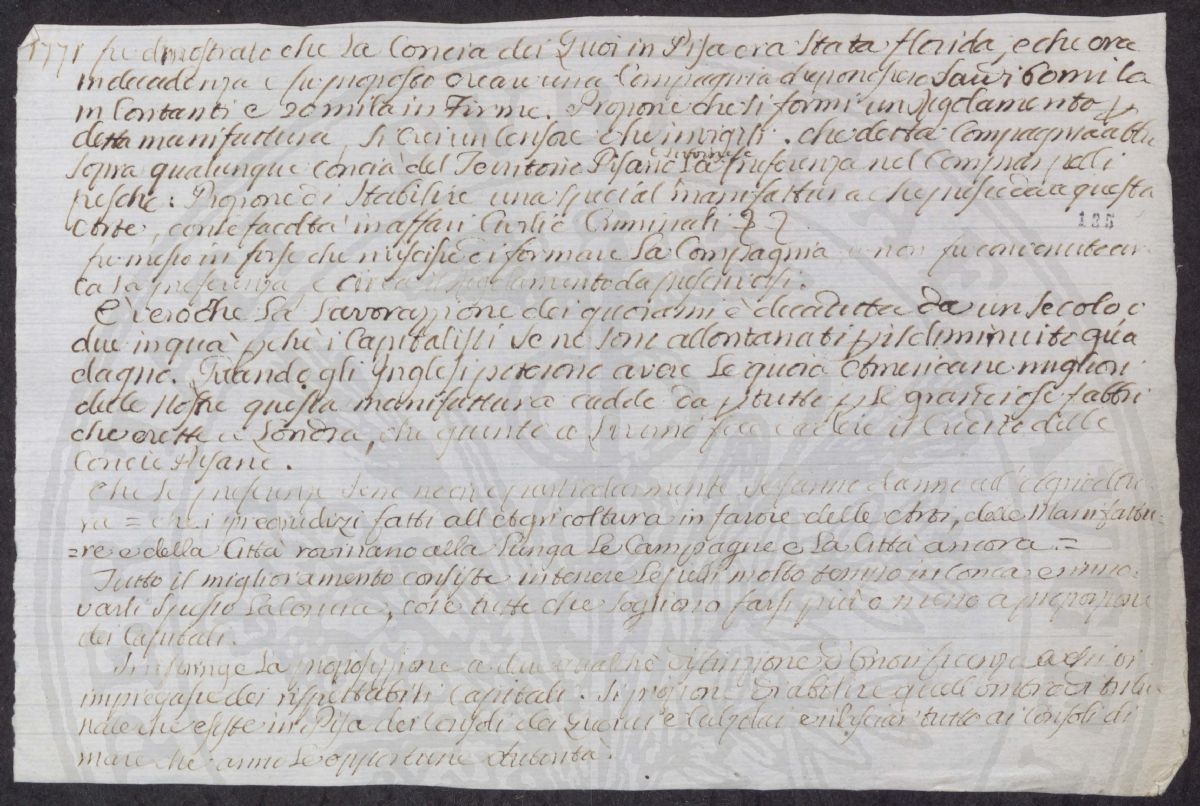 1771 fu dimostrato che la Concia dei Quoi in Pisa era stata florida, e che ora
in decadenza e fu proposto creare una Compagnia di ponessero scudi 60 mila
in Contanti e 20 mila in Firme. Propone che si formi un Regolamento p
detta manifattura, si crei un Censore che invigili. che detta Compagnia abbia
sopra qualunque concia del Territorio Pisano la preferenza nel Comprar pelli
fresche: Propone di stabilire una special manifattura che presieda a questa
Corte, con le facoltà in affari Civili e Criminali
135
fu messo in forse che riuscisse di formare la Compagnia e non fu convenuto cir
ca la preferenza e circa il regolamento da prescriversi.
E' vero che la lavorazione dei quoiami è decaduta da un secolo o
due in quà p chè i Capitalisti se ne sono allontanati p il diminuito gua
dagno. Quando gli Inglesi poterono avere le quoia Americane migliori
delle nostre questa manifattura cadde da p tutto p le grandiose fabbri
che erette a Londra, che quinto a Livorno fece cadere il Credito delle
Concie Pisane.
Che le preferenze sono nocive particolarmente se fanno danno all' Agricoltu
ra = che i pregiudizi fatti all' Agricoltura in favore delle Arti, delle Manifattu=
=re e della Città rovinano alla lunga le Campagne e la Città ancora =
Tutto il miglioramento consiste in tenere le pelli molto tempo in Conca e rinno
varli spesso la Concia, cose tutte che sogliono farsi più o meno a proporzione
dei Capitali.
Si restringe la proposizione a dare qualche distinzione di Onorificenza a chi vi
impiegasse dei rispettabili Capitali. Si propone di abolire quell' ombra di tribu
nale che esiste in Pisa dei Consoli dei Quoiai e Calzolai e rilasciar tutto ai Consoli di
mare che anno le opportune Autorità.